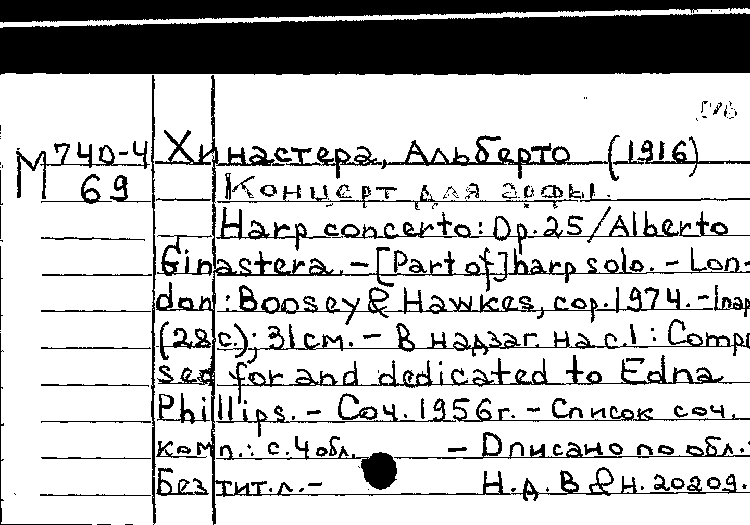 М 740-4 Хинастера, Альберто (1916)
69 Концерт для арфы.
Harp concerto: Op. 25/Alberto
Ginastera. – [Part of] harp solo. – Lon-
don: Boosey & Hawkes, cop. 1974. – 1пар
(28 с.); 31 см. – В надзаг. на с.1: Compo
sed for and dedicated to Edna
Phillips. – Соч. 1956 г. – Список соч.
комп.: с. 4 обл. – Описано по обл.:
Без тит. л. – Н. д. B & H. 20209.